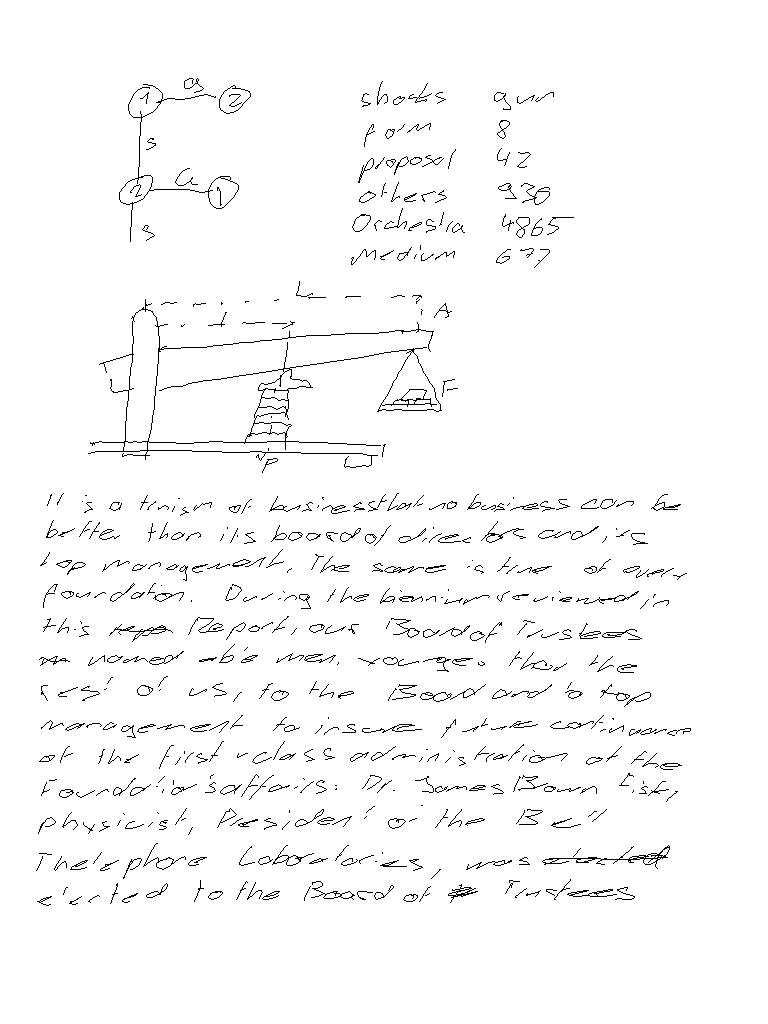 1 a 2
s
2 a 1
s
shocks gun
form 8
proposal 42
others 930
Orchestra 4865
Medium 677
L
l
A
F
P
It is a truism of business that no business can be
better than its board of directors and its
top management. The same is true of every
foundation. During the biennium reviewed in
this Report, our Board of Trustees
named three men, younger than the
rest of us, to the Board and to top
management to insure future continuance
of the first-class administration of the
Foundation's affairs: Dr. James Brown Fisk,
physicist, President of the Bell
Telephone Laboratories, was elected
elected to the Board of Trustees